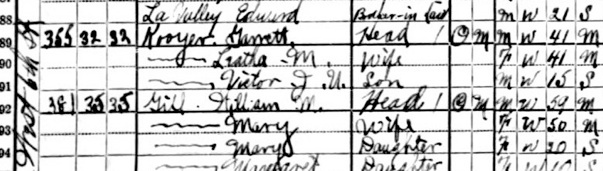 La Valley Edward Brother-in-law M W 21 S
89 355 32 32 Kroyer Garrett Head 1 O M M W 41 M
90 M. Wife F W 41 M
91 Victor J. U. Son M W 15 S
92 381 35 35 Gill William M. Head 1 O M M W 59 M
93 Mary Wife F W 50 M
94 Mary Daughter F W 20 S
Margaret Daughter F W S
West 6th St